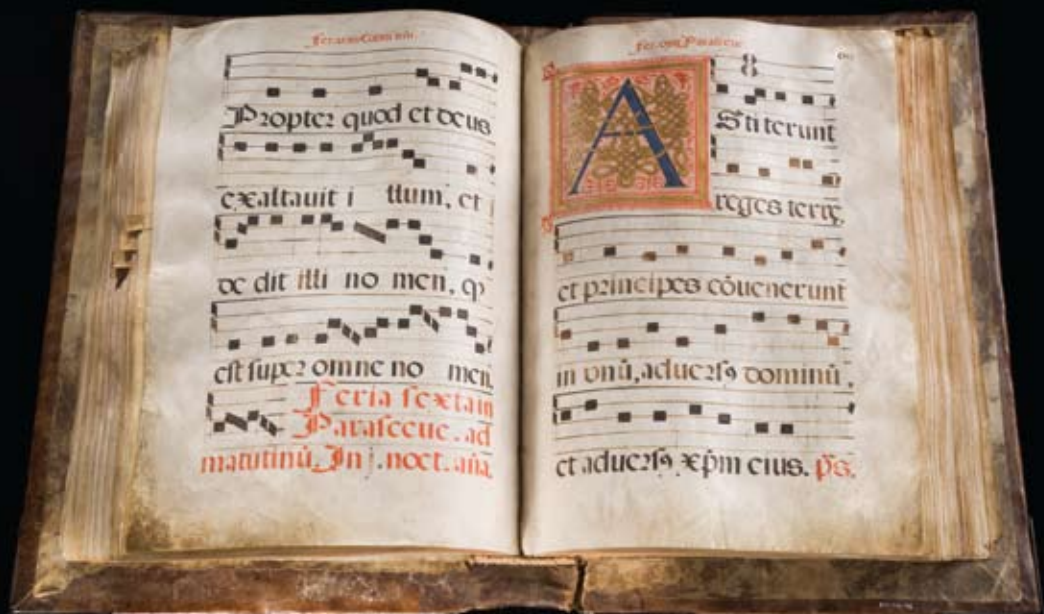 Propter quod et deus
exaltauit i llum, et
de dit illi no men, qḋ
est super omne no men,
Feria sexta in
Parasceue. ad
matutinū. In j. noct. aña.
A
Stiterunt
reges terrę,
et principes cōuenerunt
in vnū, aduersꝰ dominū,
et aduersꝰ xp̄m eius. p̄s.